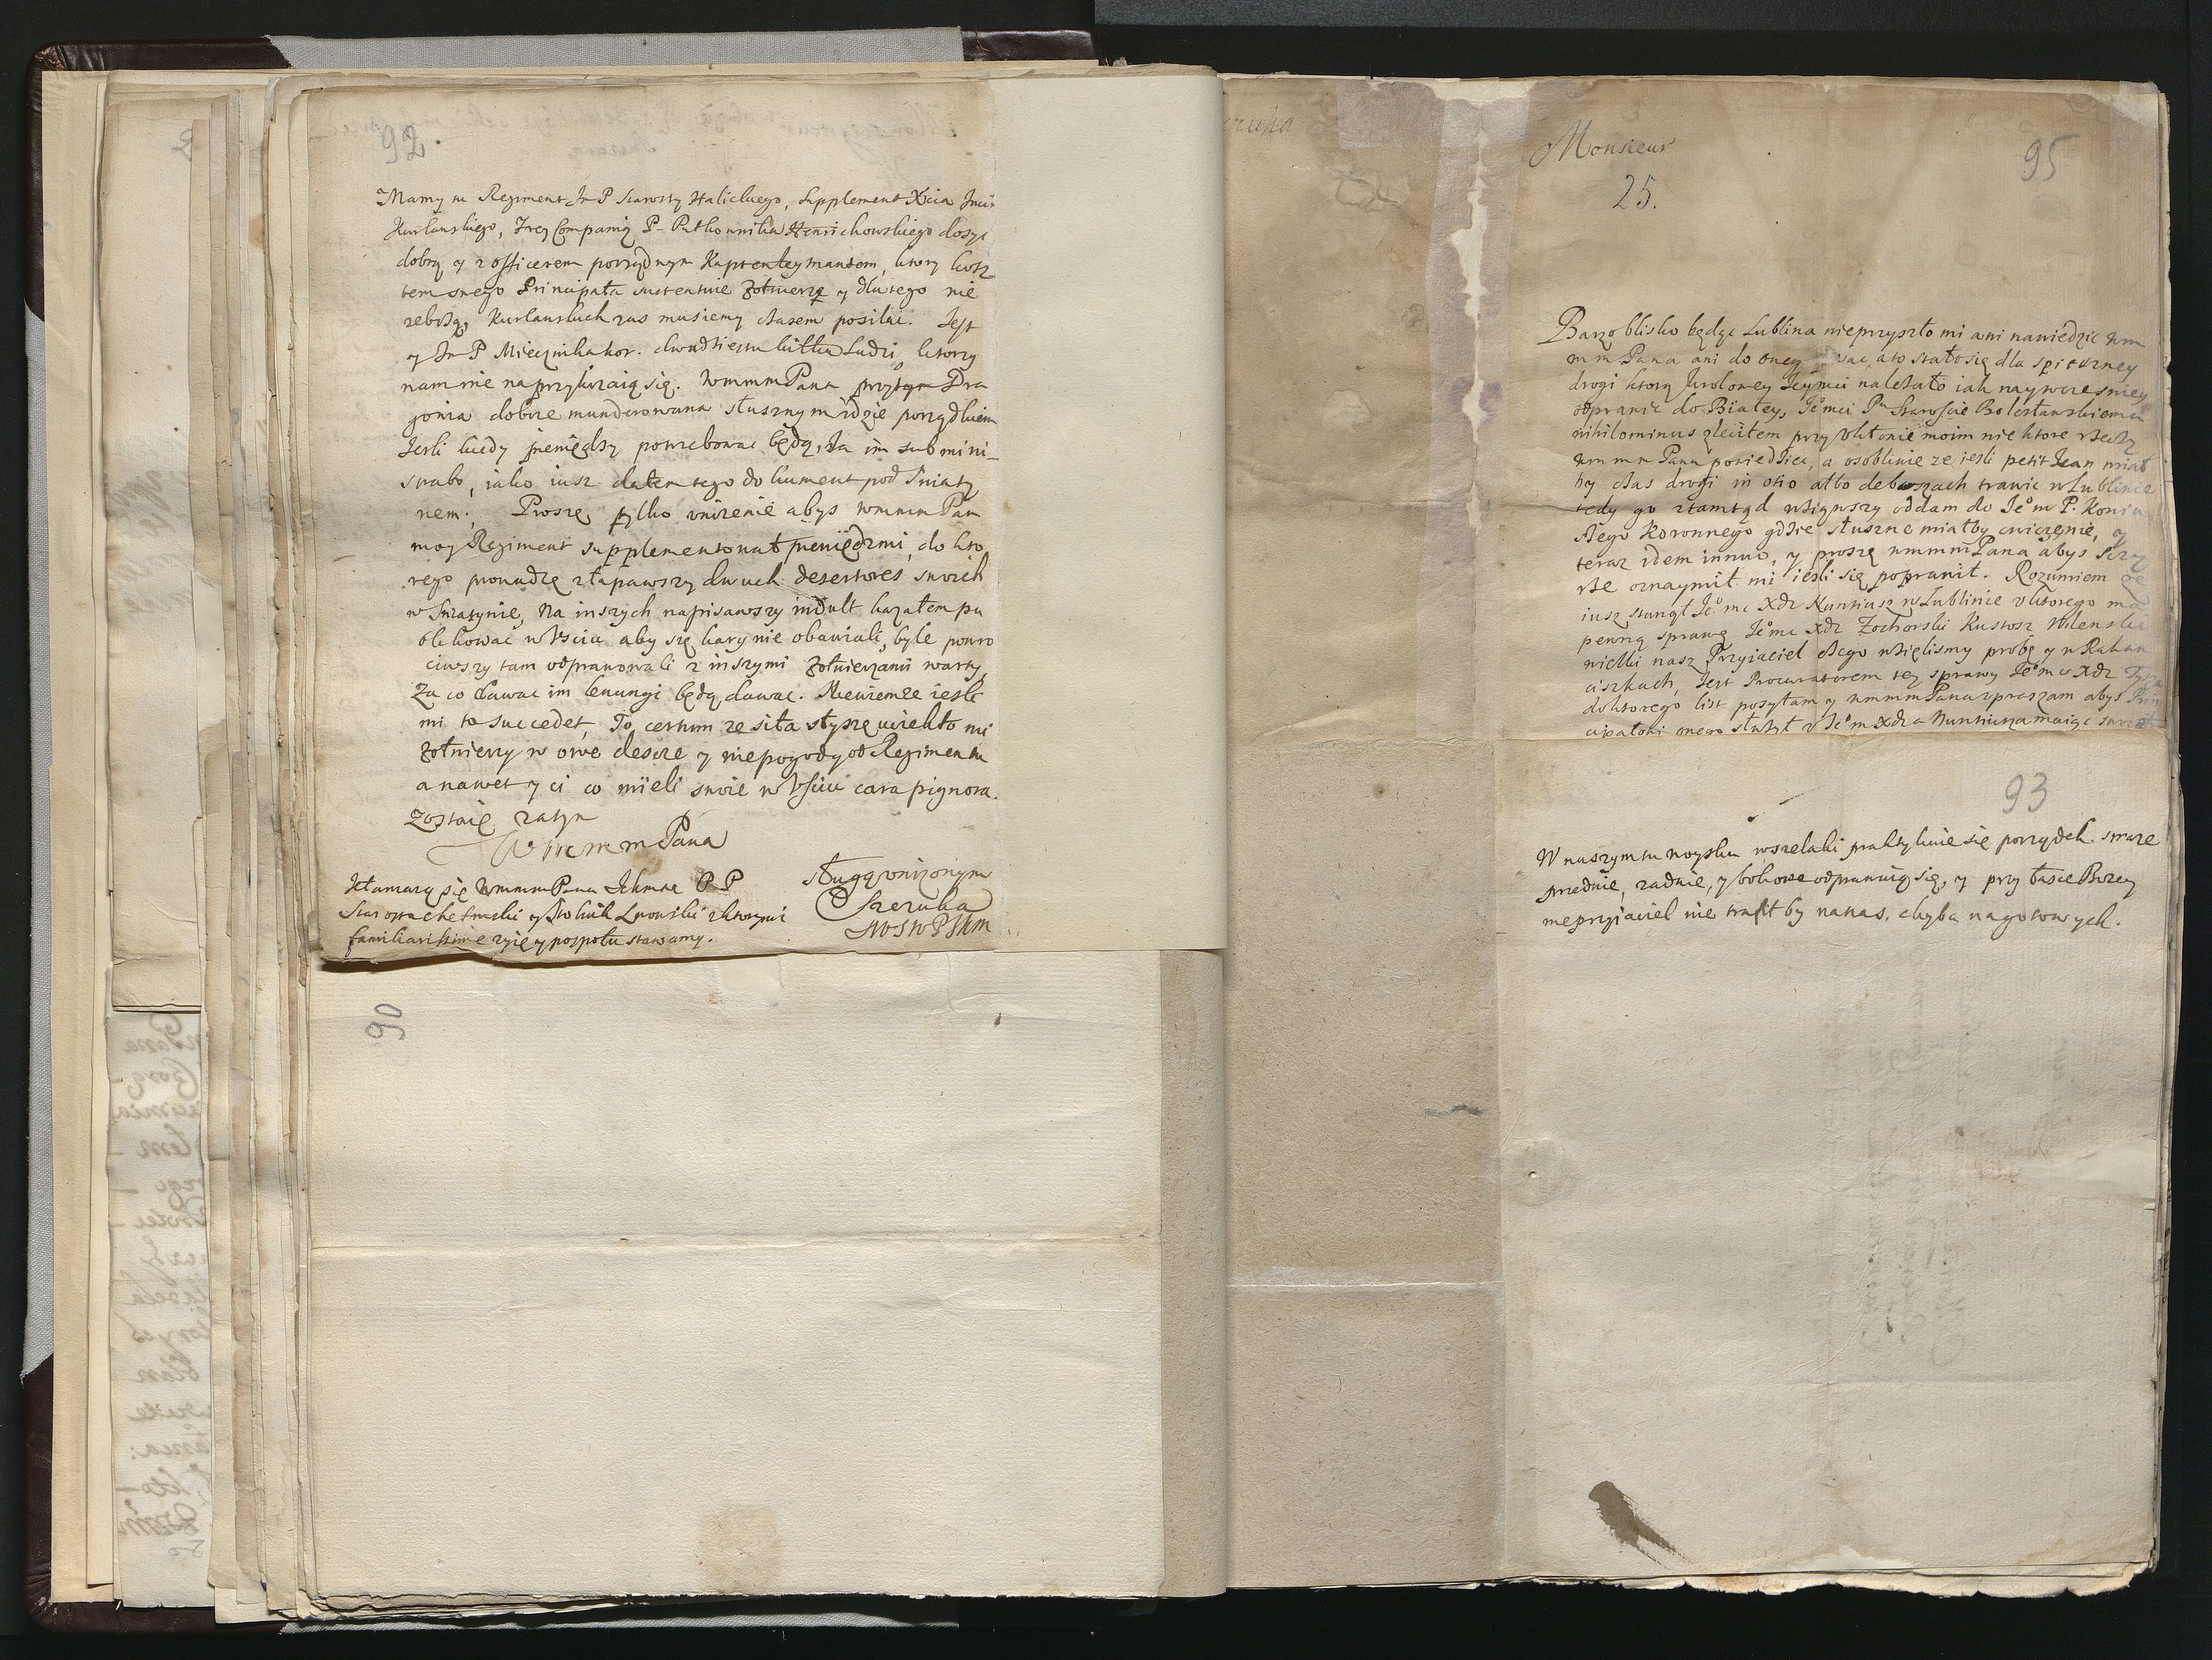 92.
Mamy tu Regiment Jm P Starosty Halickiego, supplement Xcia Jmci
Kurlanskiego, Trzy Companią P. Putkownika chowskiego dosyc
dobrą y z officerem porządnym Kaptenleymantem, ktory kosz
tem swego Principała sustentuie Zołnierzę y dlatego nie
zebrzą, Kurlanskich zas musiemy czasem posilac. Jest
y Jm P Mieczinka kor. dwudziestu kilku Ludzi, ktorzy
nam nie naprzykrzaią się. WmmmPana przytym Dra
gonia dobrze munderowana słusznym idzie porządkiem
Jesli kiedy pieniędzy potrzebowac będą, Ja im submini-
strabo, iako iusz dałem tego dokument pod Sniaty
nem. Proszę tylko unizenie abys wmmm Pan
moy Regiment supplementował pieniędzmi, do kto
rego prowadzę złapawszy dwuch desertores swoich
w Sniatynie, Na inszych napisawszy indult kazałem pu
blikowac w Usciu aby się kary nie obawiali, byle powro
ciwszy tam odprawowali z inszymi Zołnierzami warty,
Za co dawac im lenungi będą dawac. Niewiem ze iesli
mi to succedet, To certum ze siła słyszę uciekło mi
Zołnierzy w owe descze y niepogody od Regimentu
a nawet y ci co mieli swoie w Usciu cara pignora.
Zostaię zatym
WmmmPana
Kłaniaią się WmmmPanu Ichmsc PP
Starosta chełmski y Stolnik Lwowski z ktorymi
familiarissime zyię y pospołu stawamy.
sługą unizonym
Szczuka
90
Monsieur
25.
95
Barzo blisko będąc Lublina nieprzyszło mi ani nawiedzic wm
mm Pana ani do oney sac, a to stało się dla spieszney
drogi ktorą krolowey Jeymci nalezało iak naywczesniey
odprawic do Białey, Jemci Pu Staroscie Bolesławskiemu
nihilominus zleciłem przy ukłonie moim niektore rzeczy
wmmm Panu powiedziec, a osobliwie ze iesli petit Jean miał
by czas drogi in otio albo deboszach trawic w Lublinie
tedy go ztamtąd wziąwszy oddam do Je m P. Koniu
szego Koronnego gdzie słuszne miałby cwiczenie, y
teraz idem innuo, y proszę wmmm Pana abys szczy
rze oznaymił mi iesli się poprawił. Rozumiem ze
iusz stanął Je mc Xdz Nuntiusz w Lublinie u ktorego ma
pewną sprawę Je mc Xdz Zochorski Kustosz Wilenski
wielki nasz Przyiaciel czego wzięlismy probę y w Rakan
ciszkach, Jest Procuratorem tey sprawy Je mc Xdz
do ktorego list posyłam y wmmm Pana upraszam abys
cipałowi mego słuzył u Je m Xdza Nuntiusza maiąc swoie
93
W naszym tu woysku wszelaki praktykuie się porządek. straze
przednie, zadnie, y bokowe odprawuią się, y przy łasce Bozey
nieprzyiaciel nie trafił by na nas, chyba na gotowych.